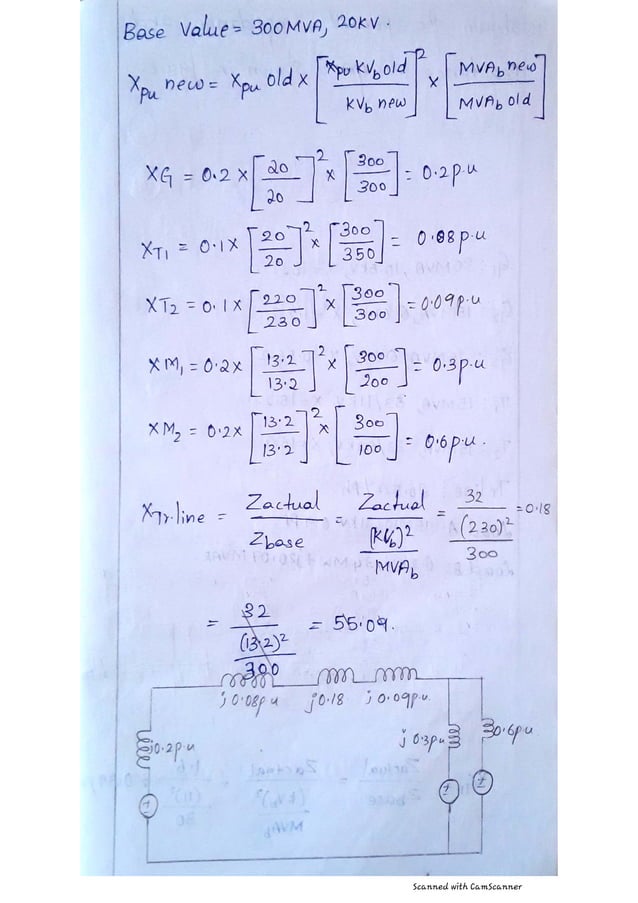 Base Value = 300MVA, 20KV.
Xpu new = Xpu old x [kVb old / kVb new]² x [MVAb new / MVAb old]
XG = 0.2 x [20 / 20]² x [300 / 300] = 0.2p.u
XT1 = 0.1x [20 / 20]² x [300 / 350] = 0.08p.u
XT2 = 0.1 x [220 / 230]² x [300 / 300] = 0.09p.u
XM1 = 0.2x [13.2 / 13.2]² x [300 / 200] = 0.3p.u
XM2 = 0.2x [13.2 / 13.2]² x [300 / 100] = 0.6p.u.
XTr.line = Zactual / Zbase = Zactual / ((KVb)² / MVAb) = 32 / ((230)² / 300) = 0.18
= 32 / ((13.2)² / 300) = 55.09.
j0.08pu j0.18 j0.09pu.
j0.2p.u j0.3pu 0.6pu
Scanned with CamScanner